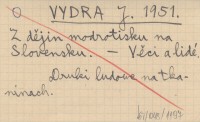 VYDRA J. 1951.
Z dějin modrotisku na
Slovensku. – Věci a lidé.
Druki ludowe na tka-
ninach.